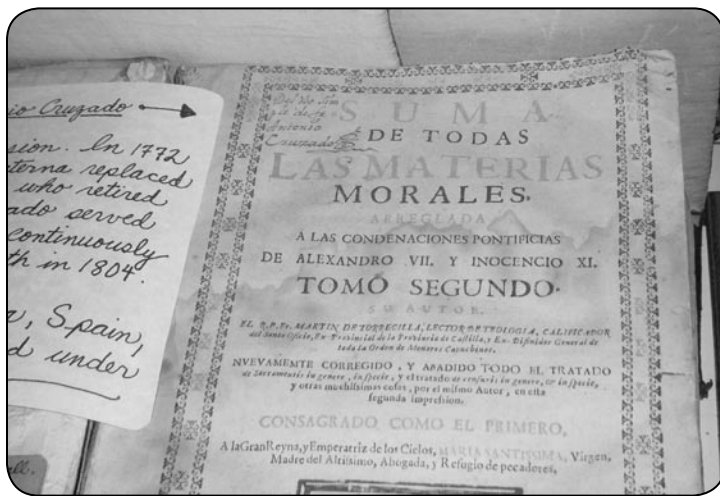 io Cruzado
sion. In 1772
terna replaced
who retired
ado served
continuously
th in 1804.
, Spain,
d under
ll.
Antonio
Cruzado
SUMA
DE TODAS
LAS MATERIAS
MORALES,
ARREGLADA
A LAS CONDENACIONES PONTIFICIAS
DE ALEXANDRO VII. Y INOCENCIO XI.
TOMO SEGUNDO.
SU AUTOR,
EL R.P.Fr. MARTIN DE TORRECILLA, LECTOR DE TEOLOGIA, CALIFICADOR
del Santo Oficio, Ex-Provincial de la Provincia de Castilla, y Ex-Difinidor General de
toda la Orden de Menores Capuchinos.
NUEVAMENTE CORREGIDO, Y AÑADIDO TODO EL TRATADO
de Sacramentis in genere, in specie, y el tratado de censuris in genere, & in specie,
y otras muchissimas cosas, por el mismo Autor, en esta
segunda impression.
CONSAGRADO, COMO EL PRIMERO,
A la Gran Reyna, y Emperatriz de los Cielos, MARIA SANTISSIMA, Virgen,
Madre del Altissimo, Abogada, y Refugio de pecadores.